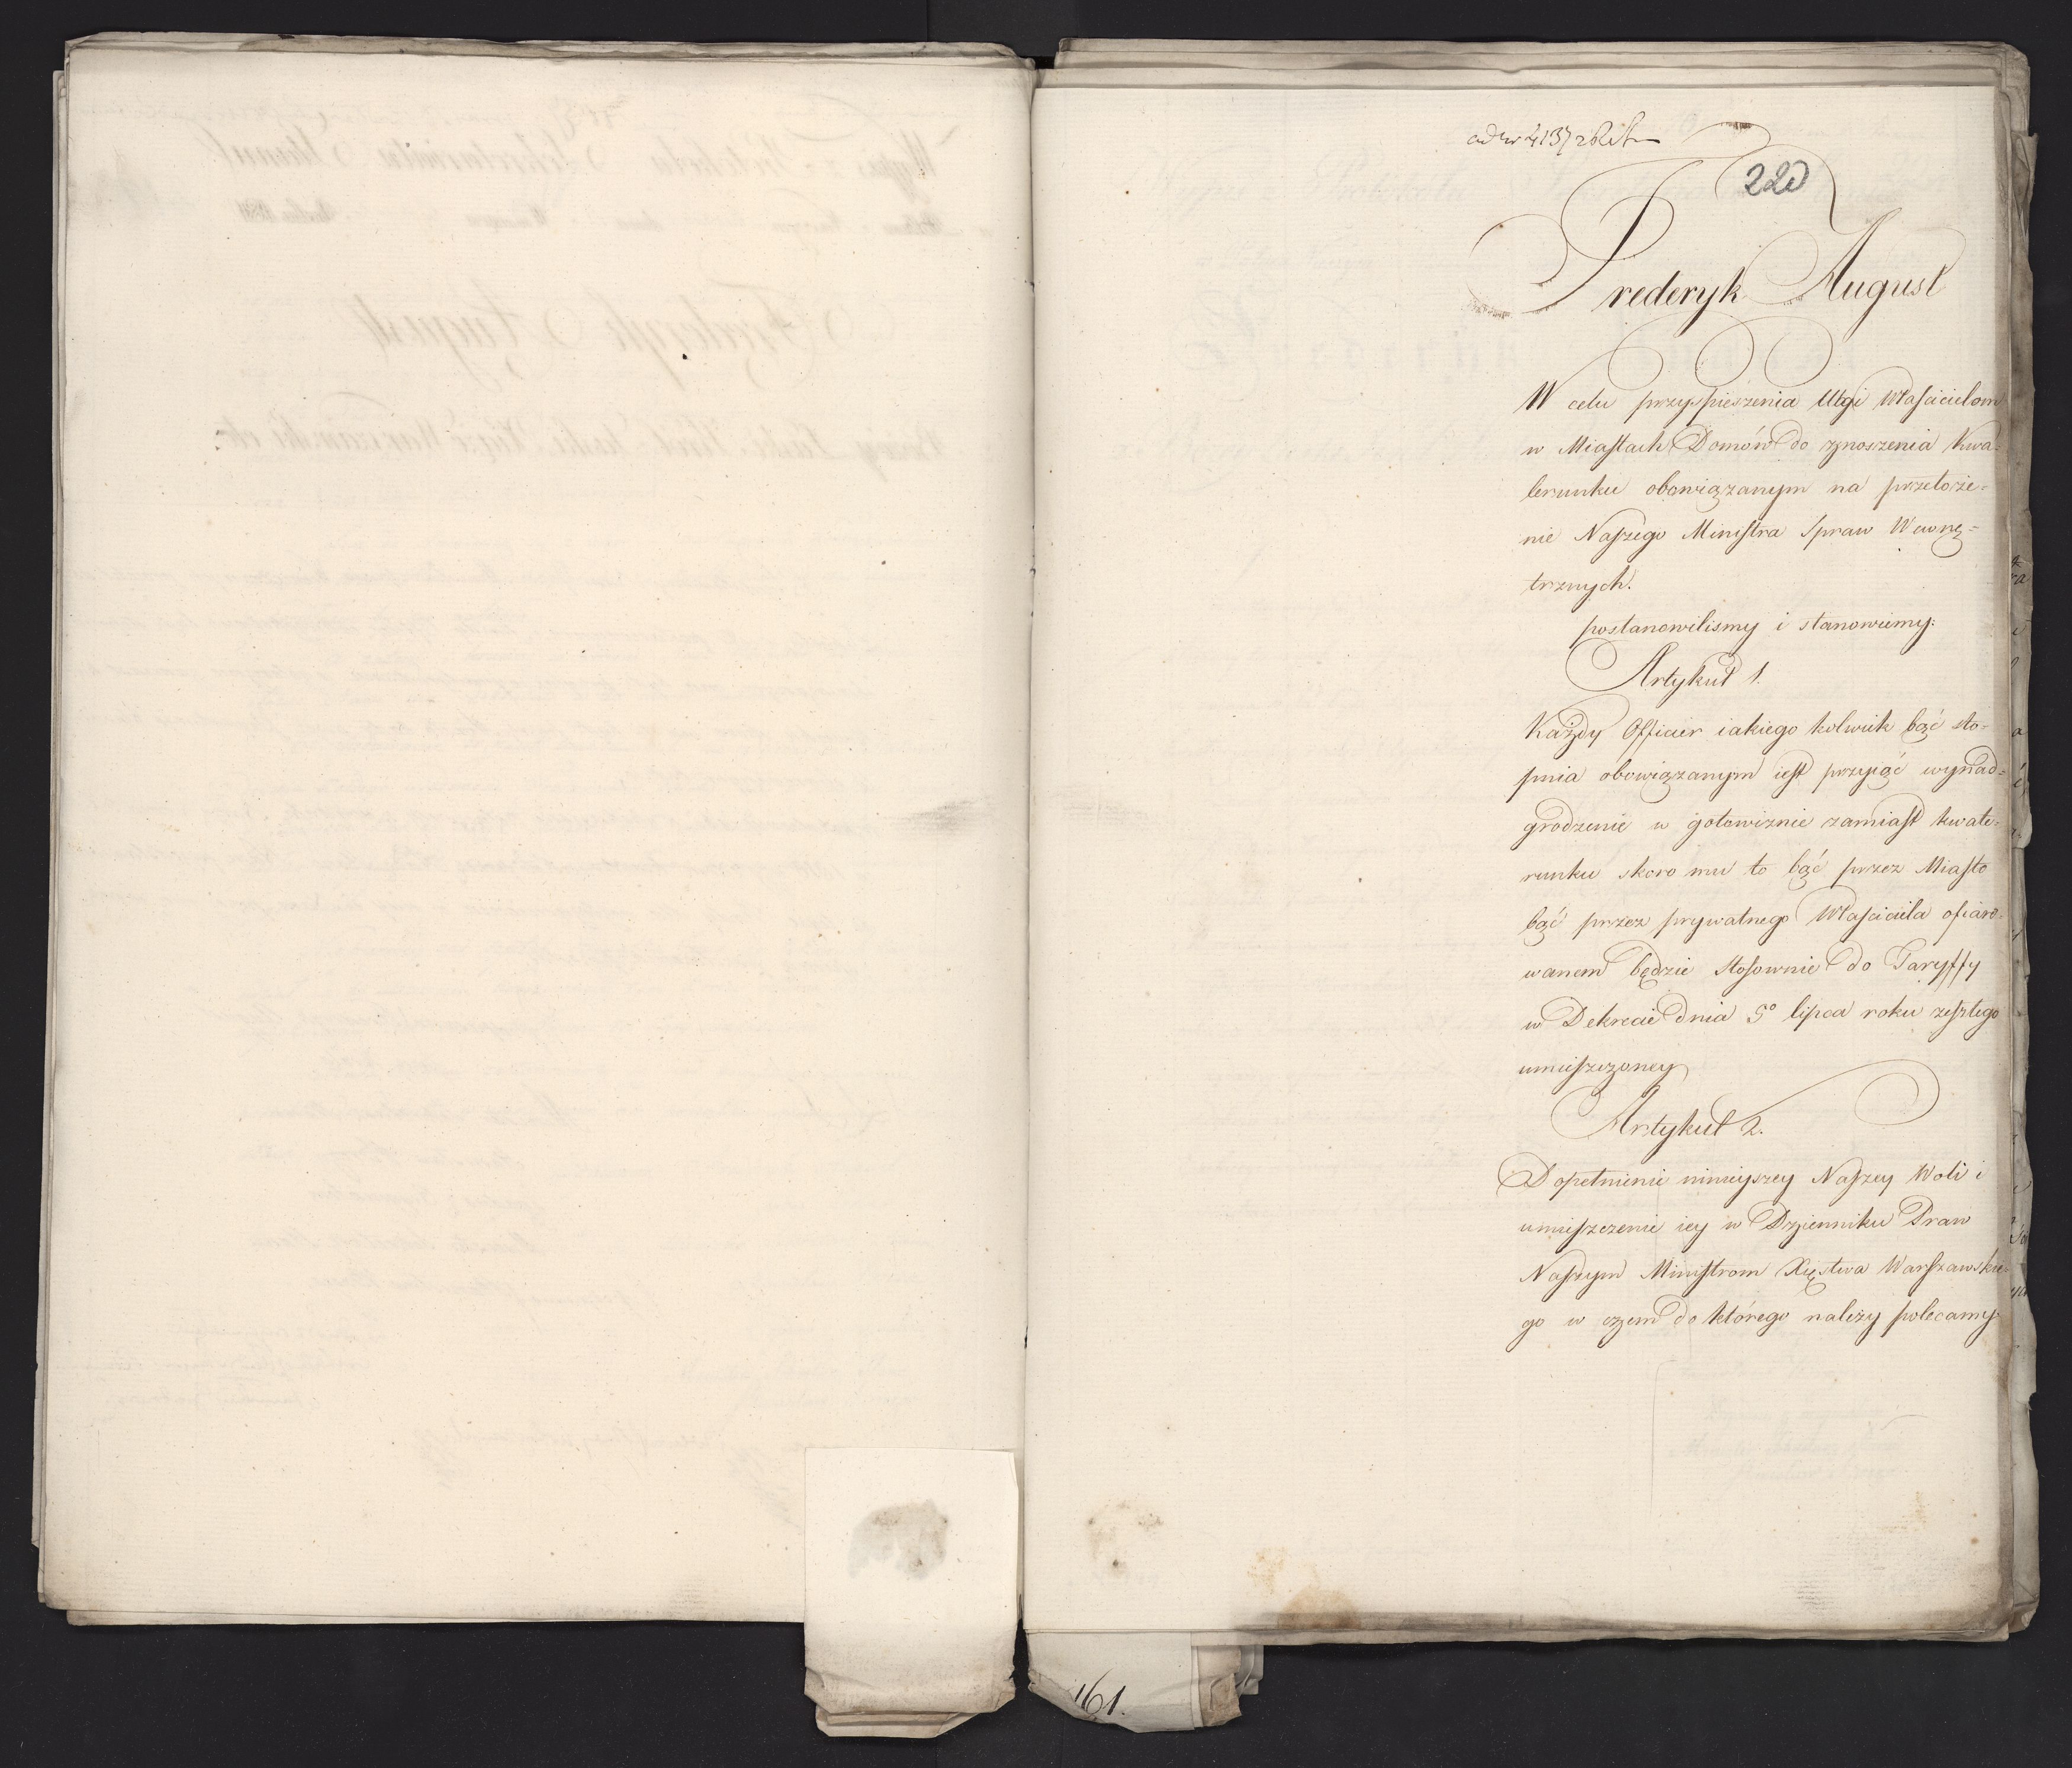 220
Frederyk August
W celu przyspieszenia Ulgi Właścicielom
w Miastach Domów do znoszenia Kwa-
terunku obowiązanym na przełoże-
nie Naszego Ministra Spraw Wewnę-
trznych.
postanowilismy i stanowiemy:
Artykuł 1.
Każdy Officier iakiego kolwiek bąć sto-
pnia obowiązanym iest przyiąć wynad-
grodzenie w gotowiznie zamiast kwate-
runku skoro mu to bąć przez Miasto
bąć przez prywatnego Właściciela ofiaro-
wanem będzie stosownie do Taryffy
w Dekrecie dnia 5º lipca roku zeszłego
umieszczoney
Artykuł 2.
Dopełnienie ninieyszey Naszey Woli i
umieszczenie iey w Dzienniku Praw
Naszym Ministrom Xięstwa Warszawskie-
go w czem do którego należy polecamy
161.